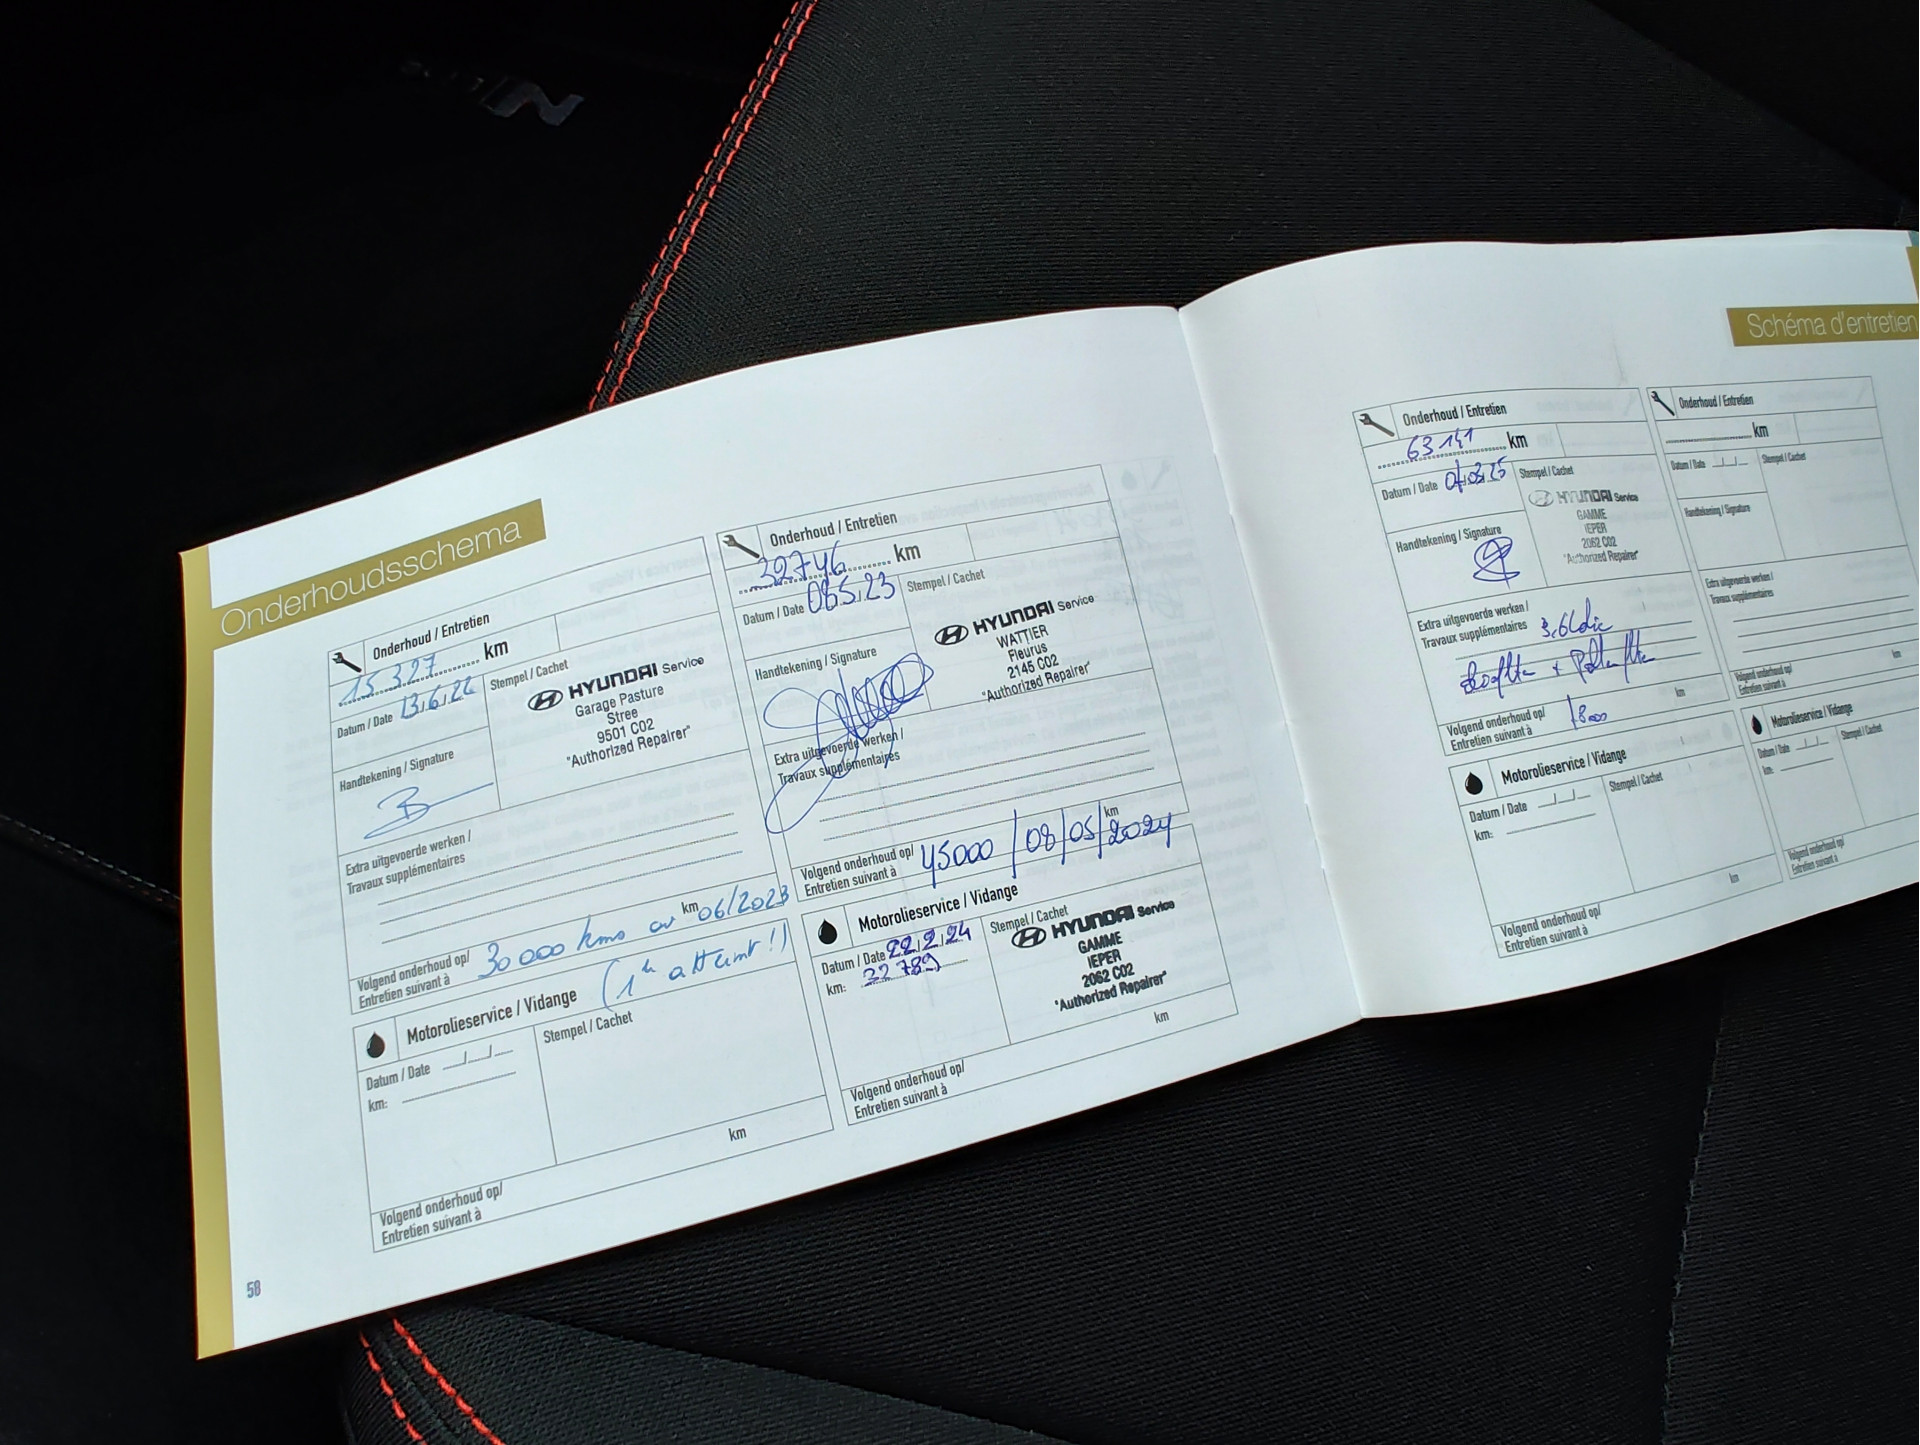 N Line
Onderhoudsschema
Onderhoud / Entretien
15 327 km
Datum / Date 13,6,22
Stempel / Cachet
HYUNDAI Service
Garage Pasture
Stree
9501 C02
"Authorized Repairer"
Handtekening / Signature
Extra uitgevoerde werken /
Travaux supplémentaires
km
Volgend onderhoud op/
Entretien suivant à
30 000 kms ou 06/2023
(1er atteint !)
Motorolieservice / Vidange
Datum / Date
Stempel / Cachet
km:
km
Volgend onderhoud op/
Entretien suivant à
58
Onderhoud / Entretien
32746 km
Datum / Date
Stempel / Cachet
HYUNDAI Service
WATTIER
Fleurus
2145 C02
"Authorized Repairer"
Handtekening / Signature
Extra uitgevoerde werken /
Travaux supplémentaires
km
Volgend onderhoud op/
Entretien suivant à
45000 / 08/05/2024
Motorolieservice / Vidange
Datum / Date 22,2,24
km:
Stempel / Cachet
HYUNDAI Service
GAMME
IEPER
2062 C02
"Authorized Repairer"
km
Volgend onderhoud op/
Entretien suivant à
Schéma d'entretien
Onderhoud / Entretien
63141 km
Datum / Date
Stempel / Cachet
HYUNDAI Service
GAMME
IEPER
2062 C02
"Authorized Repairer"
Handtekening / Signature
Extra uitgevoerde werken /
Travaux supplémentaires
km
Volgend onderhoud op/
Entretien suivant à
Motorolieservice / Vidange
Datum / Date
Stempel / Cachet
km:
km
Volgend onderhoud op/
Entretien suivant à
Onderhoud / Entretien
km
Datum / Date
Stempel / Cachet
Handtekening / Signature
Extra uitgevoerde werken /
Travaux supplémentaires
km
Volgend onderhoud op/
Entretien suivant à
Motorolieservice / Vidange
Datum / Date
Stempel / Cachet
km:
Volgend onderhoud op/
Entretien suivant à